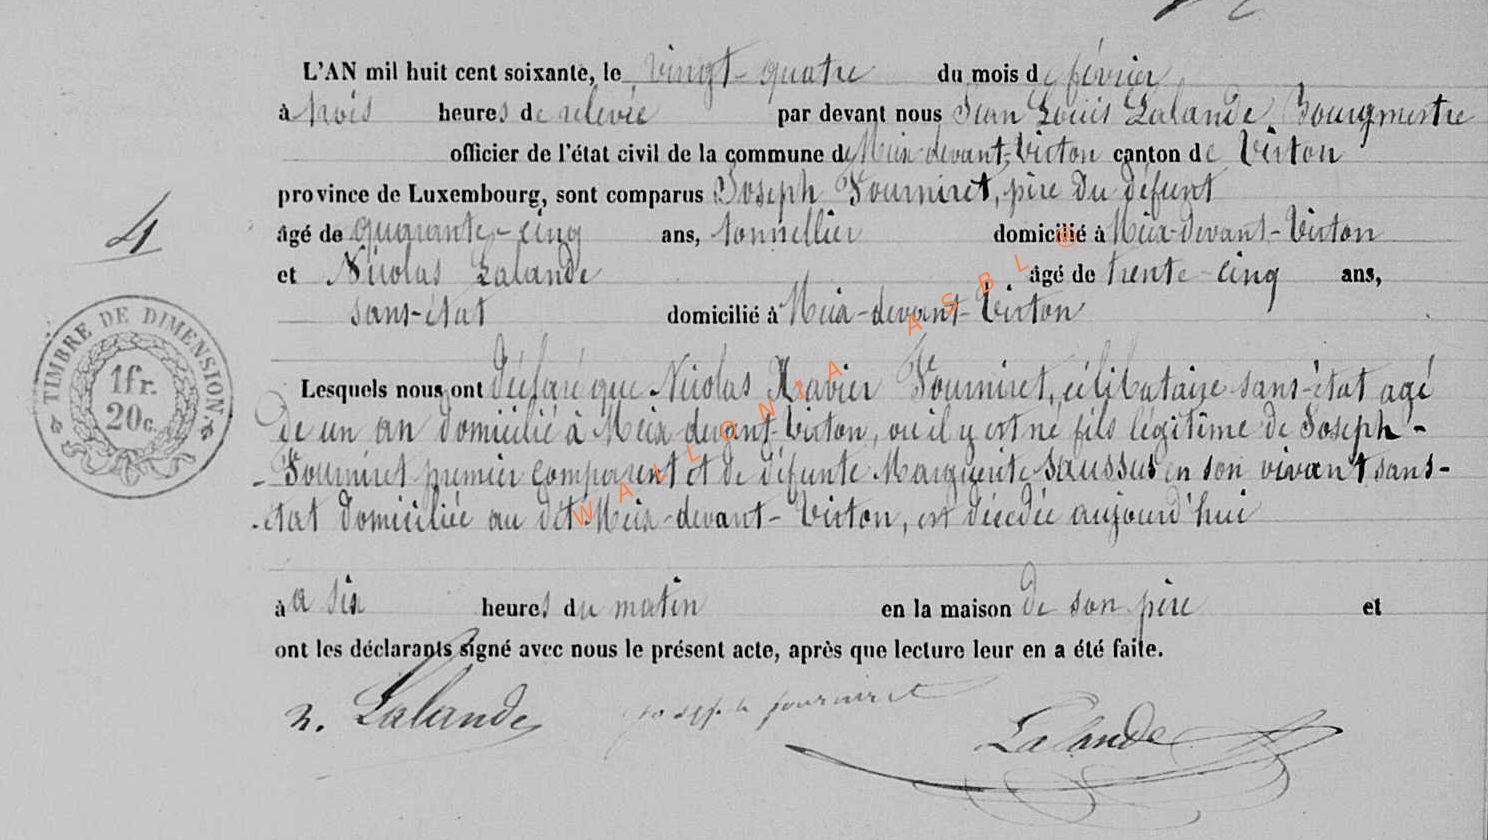 L'AN mil huit cent soixante, le vingt-quatre du mois de février
à trois heures de relevée par devant nous Jean Louis Lalande Bourgmestre
officier de l'état civil de la commune de Meix-devant-Virton canton de Virton
province de Luxembourg, sont comparus Joseph Fourniret, père du défunt
4
âgé de quarante-cinq ans, tonnellier domicilié à Meix-devant-Virton
et Nicolas Lalande âgé de trente-cinq ans,
sans-état domicilié à Meix-devant-Virton
TIMBRE DE DIMENSION.
1 fr.
20 c.
Lesquels nous ont déclaré que Nicolas Xavier Fourniret, célibataire sans-état agé
de un an domicilié à Meix-devant-Virton, où il y est né fils légitime de Joseph-
-Fourniret premier comparent et de défunte Marguerite Saussus en son vivant sans-
-état domiciliée au dit Meix-devant-Virton, est décédée aujourd'hui
à a six heures du matin en la maison de son père et
ont les déclarants signé avec nous le présent acte, après que lecture leur en a été faite.
n. Lalande joseph fourniret Lalande
WALLONIA ASBL ®